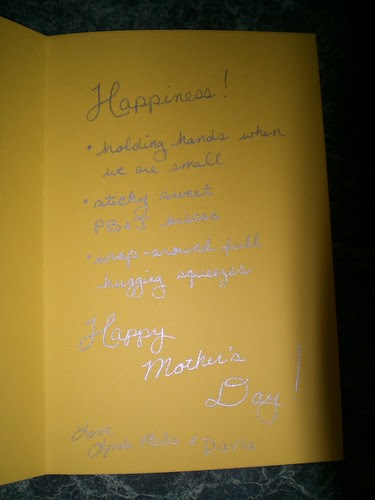 Happiness!
• holding hands when
we are small
• sticky sweet
PB&J kisses
• wrap-around full
hugging squeezes
Happy
Mother's
Day!
Love
&